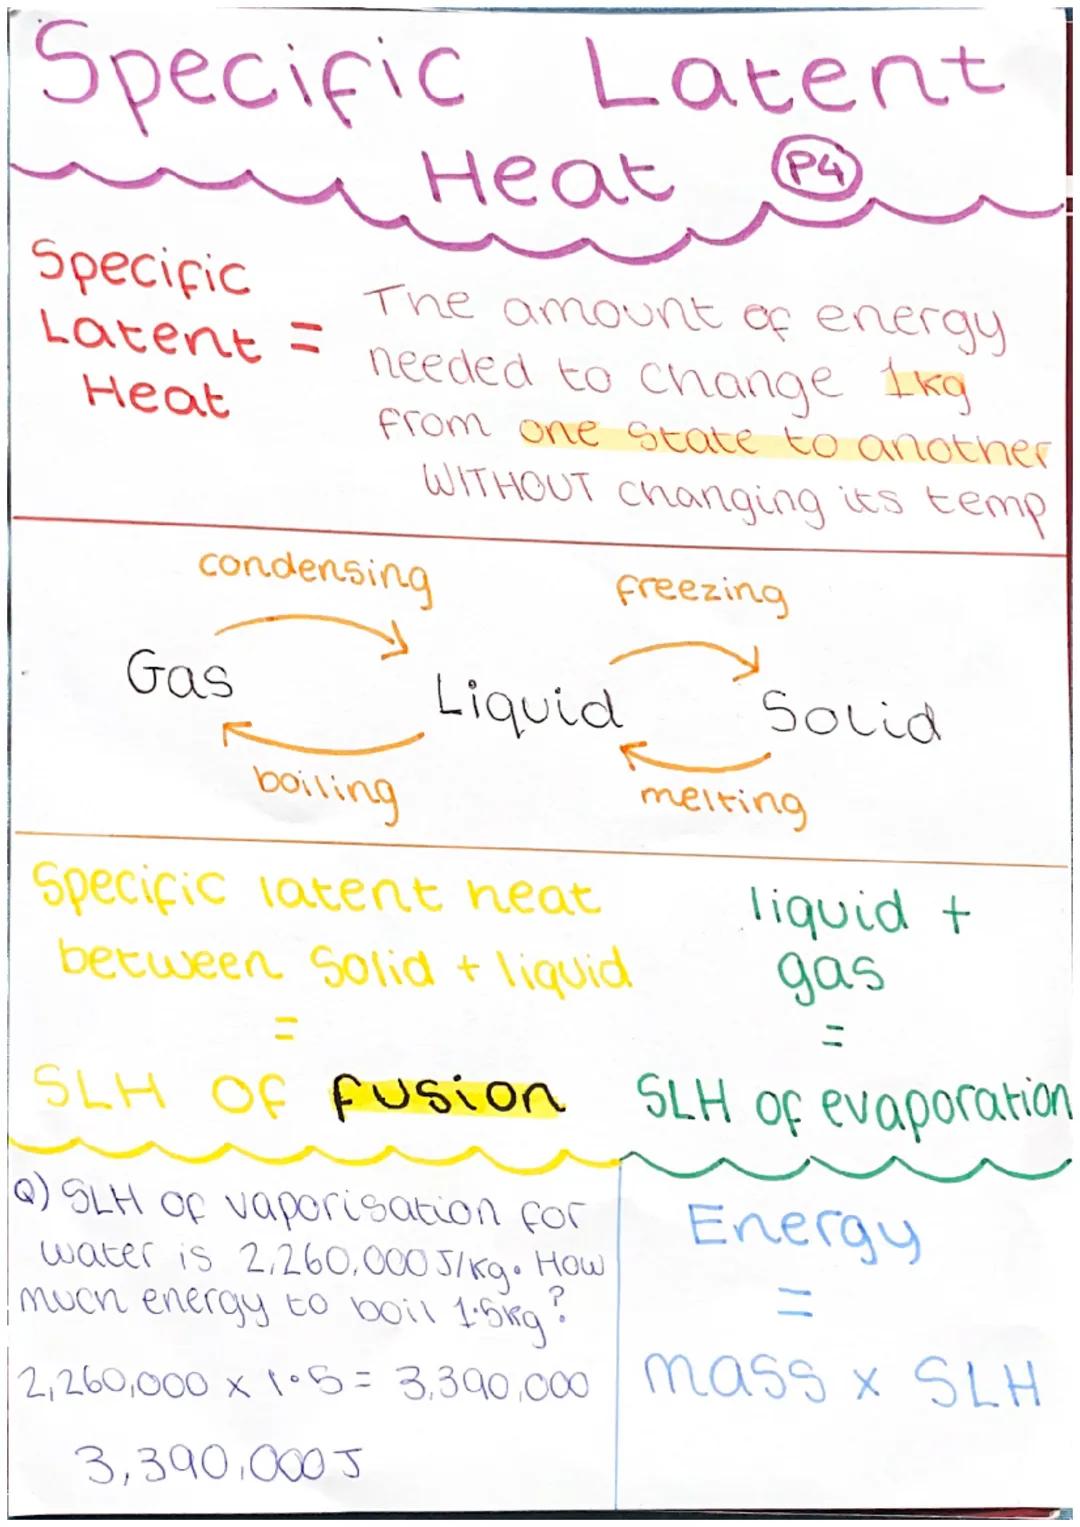 Specific Latent
Heat P4
Specific
Latent =
Heat
The amount of energy
needed to change 1kg
from one state to another
WITHOUT changing its temp
condensing
freezing
Gas
Liquid
Solid
boiling
melting
Specific latent heat
between solid + liquid
=
SLH OF fusion
liquid +
gas
=
SLH of evaporation
Q) SLH of vaporisation for
water is 2,260,000 J/kg. How
much energy to boil 1.5kg?
2,260,000 x 1.5 = 3,390,000
3,390,000J
Energy
=
mass x SLH